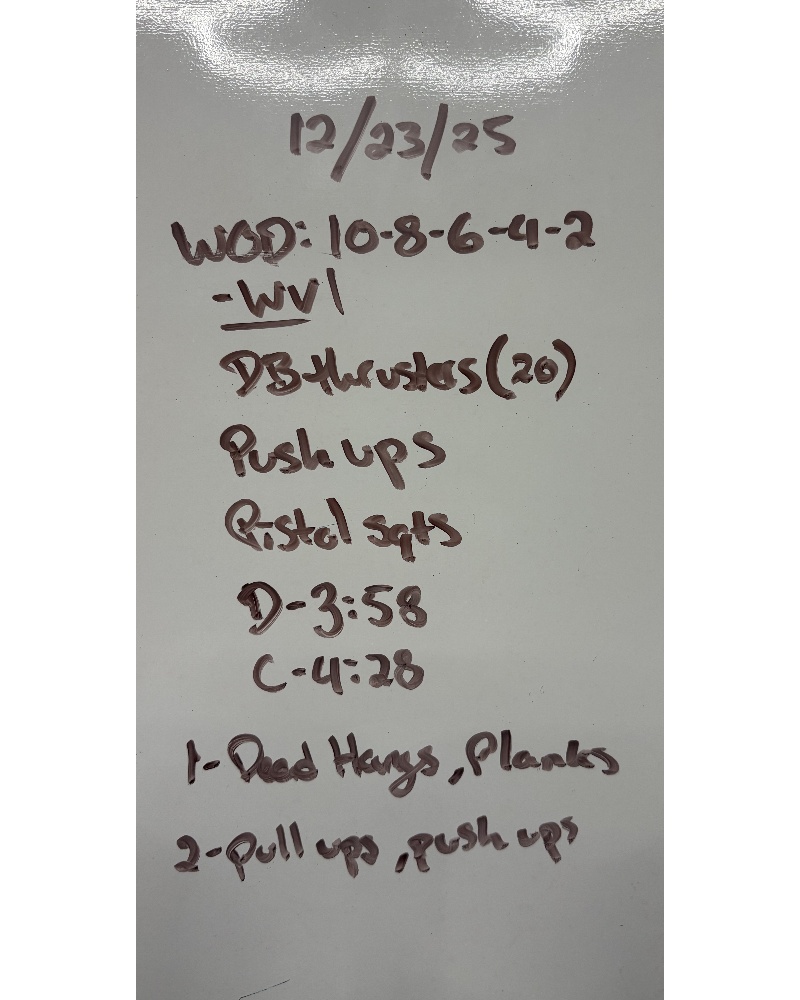 12/23/25
WOD: 10-8-6-4-2
-WV1
DB thrusters (20)
Push ups
Pistol sqts
D-3:58
C-4:28
1-Dead Hangs, Planks
2-pull ups, push ups